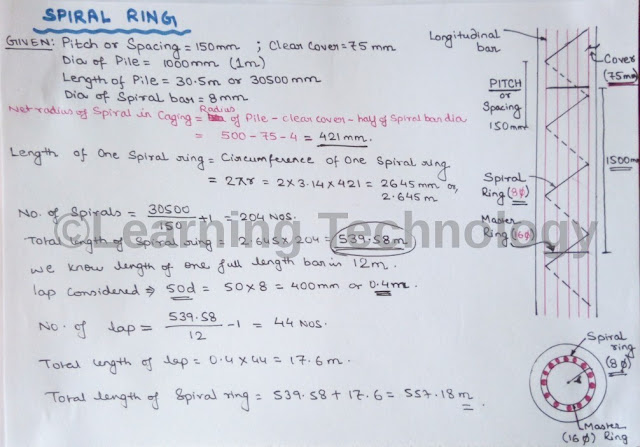 SPIRAL RING
GIVEN: Pitch or Spacing = 150mm ; Clear Cover = 75 mm
Dia of Pile = 1000mm (1m)
Length of Pile = 30.5m or 30500mm
Dia of Spiral bar = 8mm
Net radius of Spiral in Caging = Radius of Pile - clear cover - half of Spiral bar dia
= 500 - 75 - 4 = 421mm.
Length of One Spiral ring = Circumference of One Spiral ring
= 2πr = 2 x 3.14 x 421 = 2645mm or,
2.645m
No. of Spirals = 30500/150 + 1 = 204 NOS.
Total length of Spiral ring = 2.645 x 204 = 539.58m
©Learning Technology
We know length of one full length bar is 12m.
lap considered ⇒ 50d = 50 x 8 = 400mm or 0.4m.
No. of lap = 539.58/12 - 1 = 44 NOS.
Total length of lap = 0.4 x 44 = 17.6m.
Total length of Spiral ring = 539.58 + 17.6 = 557.18m.
Longitudinal
bar
Cover
(75mm)
PITCH
or
Spacing
150mm
1500mm
Spiral
Ring (8φ)
Master
Ring (16φ)
Spiral
ring
(8φ)
Master
(16φ) Ring